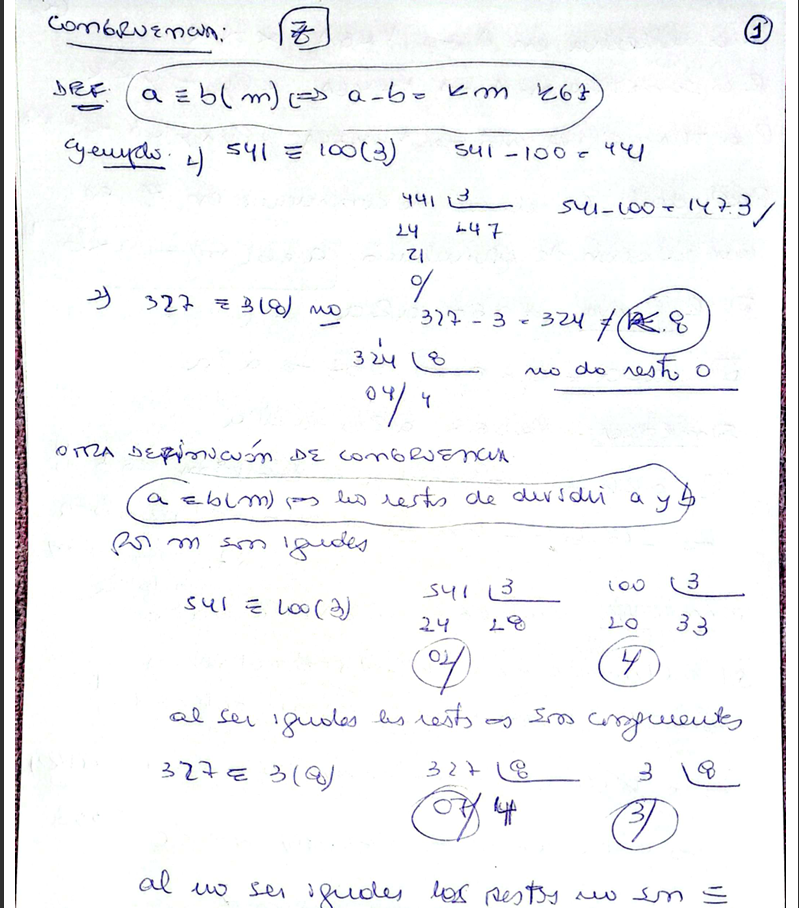 CONGRUENCIA: Z 1
DEF: a ≡ b(m) ⇔ a-b = km k∈Z
Ejemplo. 1) 541 ≡ 100(3) 541-100 = 441
441 | 3 541-100 = 147.3 ✓
14 147
21
0/
2) 327 ≡ 3(8) no 327-3 = 324 ≠ k.8
324 | 8 no da resto 0
04/ 4
OTRA DEFINICIÓN DE CONGRUENCIA
a ≡ b(m) ⇔ los restos de dividir a y b
por m son iguales
541 ≡ 100(3) 541 | 3 100 | 3
24 18 10 33
01/ 1
al ser iguales los restos ⇒ son congruentes
327 ≡ 3(8) 327 | 8 3 | 8
07/ 4 3/
al no ser iguales los restos no son ≡